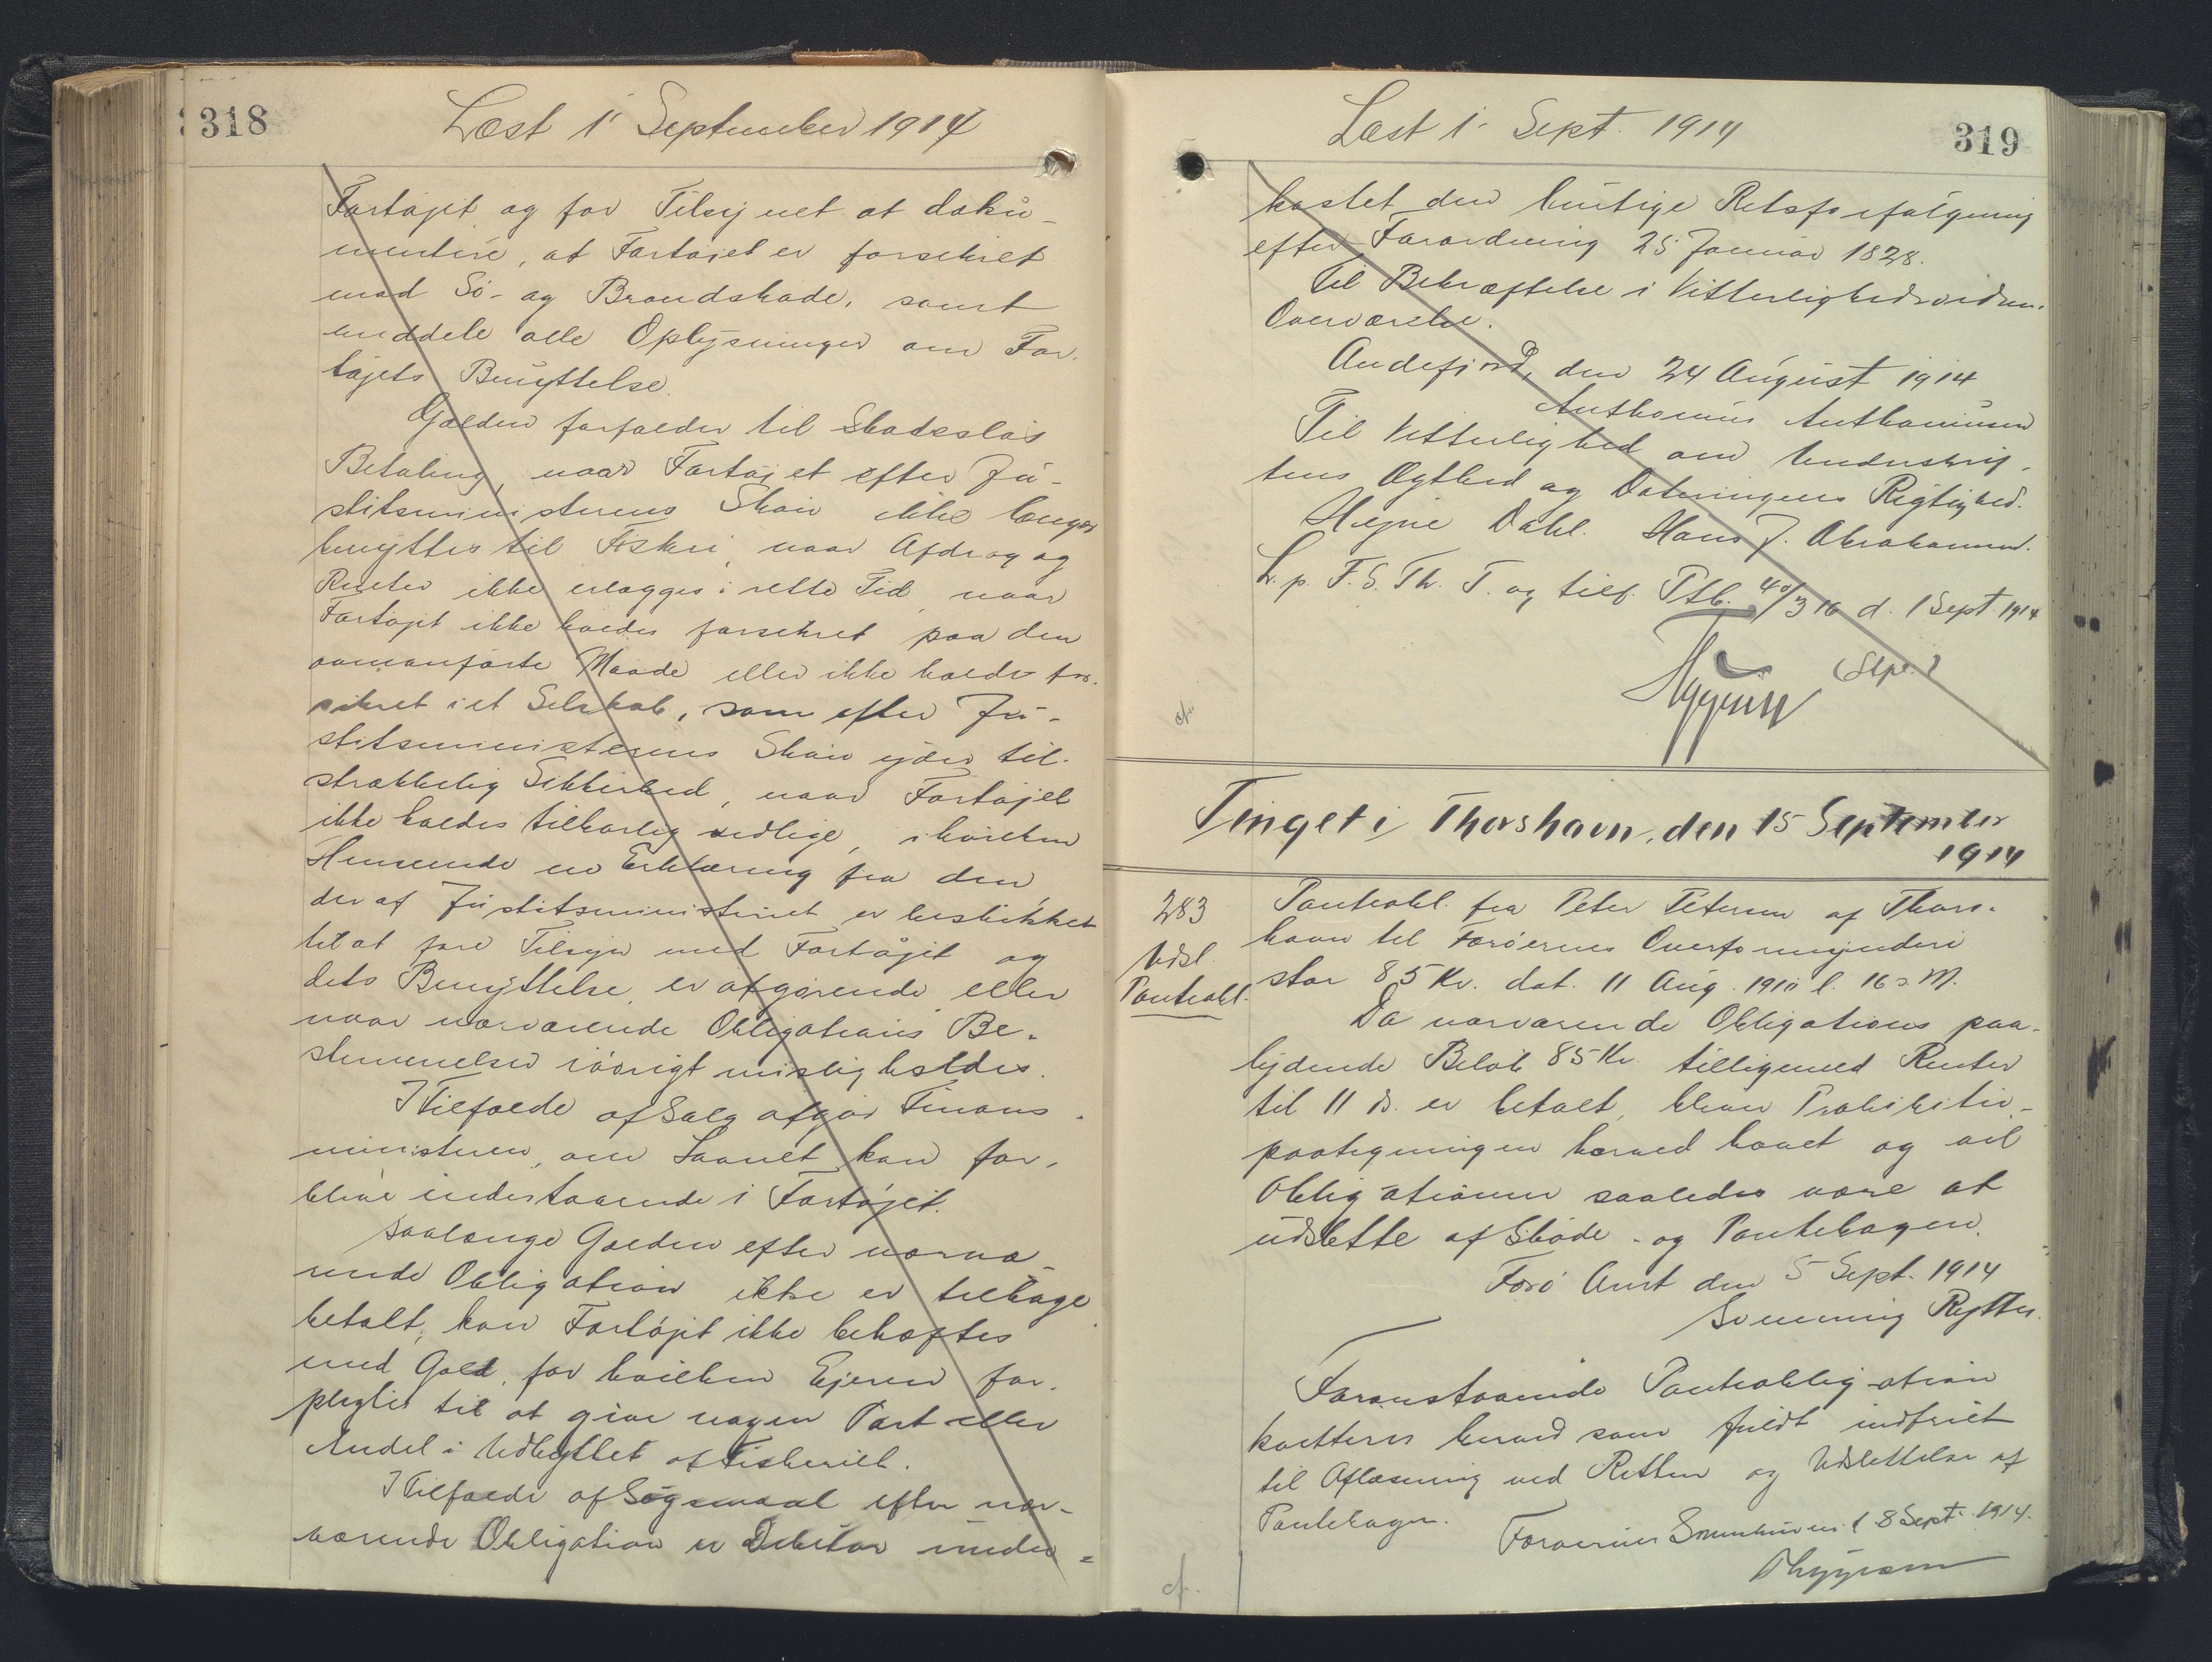 318
Læst 1' September 1914
Fartøjet og for Tilsynet at doku-
mentere, at Fartøjet er forsikret
mod Sø- og Brandskade, samt
meddele alle Oplysninger om Far-
tøjets Benyttelse.
Gælden forfalder til skadesløs
Betaling, naar Fartøjet efter Ju-
stitsministerens Skøn ikke længer
benyttes til Fiskeri, naar Afdrag og
Renter ikke erlægges i rette Tid, naar
Fartøjet ikke holdes forsikret paa den
ovenanførte Maade eller ikke holdes for-
sikret i et Selskab, som efter Ju-
stitsministerens Skøn yder til-
strækkelig Sikkerhed, naar Fartøjet
ikke holdes tilbørlig vedlige, i hvilken
Henseende en Erklæring fra den
der af Justitsministeriet er beskikket
til at føre Tilsyn med Fartøjet og
dets Benyttelse, er afgørende eller
naar nærværende Obligations Be-
stemmelser iøvrigt misligholdes.
I Tilfælde af Salg afgør Finans-
ministeren, om Laanet kan for-
blive indestaaende i Fartøjet.
Saalænge Gælden efter nærvæ-
rende Obligation ikke er tilbage
betalt, kan Fartøjet ikke behæftes
med Gæld, for hvilken Ejeren for-
pligtes til at give nogen Part eller
Andel i Udbyttet af Fiskeriet.
I Tilfælde af Søgsmaal efter nær-
værende Obligation er Debitor under=
319
Læst 1' Sept. 1914
kastet den hurtige Retsforfølgning
efter Forordning 25' Januar 1828.
Til Bekræftelse i Vitterlighedsvidners
Overværelse.
Andefjord, den 24 August 1914
Anthonius Anthoniusen
Til Vitterlighed om Underskrif-
tens Ægthed og Dateringens Rigtighed.
Hejne Dahl. Hans J. Abrahamsen.
L. p. F. S. Th. T. og tilf. Ptb. 40/316 d. 1 Sept. 1914
cfr
Tinget i Thorshavn, den 15 September
1914
283
Udsl.
Panteobl.
Panteobl. fra Peter Petersen af Thors-
havn til Færøernes Overformynderi
stor 85 Kr. dat. 11 Aug. 1910 l. 16 s. M.
Da nærværende Obligations paa-
lydende Beløb 85 Kr. tilligemed Renter
til 11 ds. er betalt, bliver Prohibitiv-
paategningen herved hævet og vil
Obligationen saaledes være at
udslette af Skøde- og Pantebogen.
Færø Amt den 5 Sept. 1914
Svenning Rytter.
Foranstaaende Panteobligation
kvitteres herved som fuldt indfriet
til Aflæsning ved Retten og Udslettelse af
Pantebogen.
Færøernes 8 Sept. 1914.
cfr.